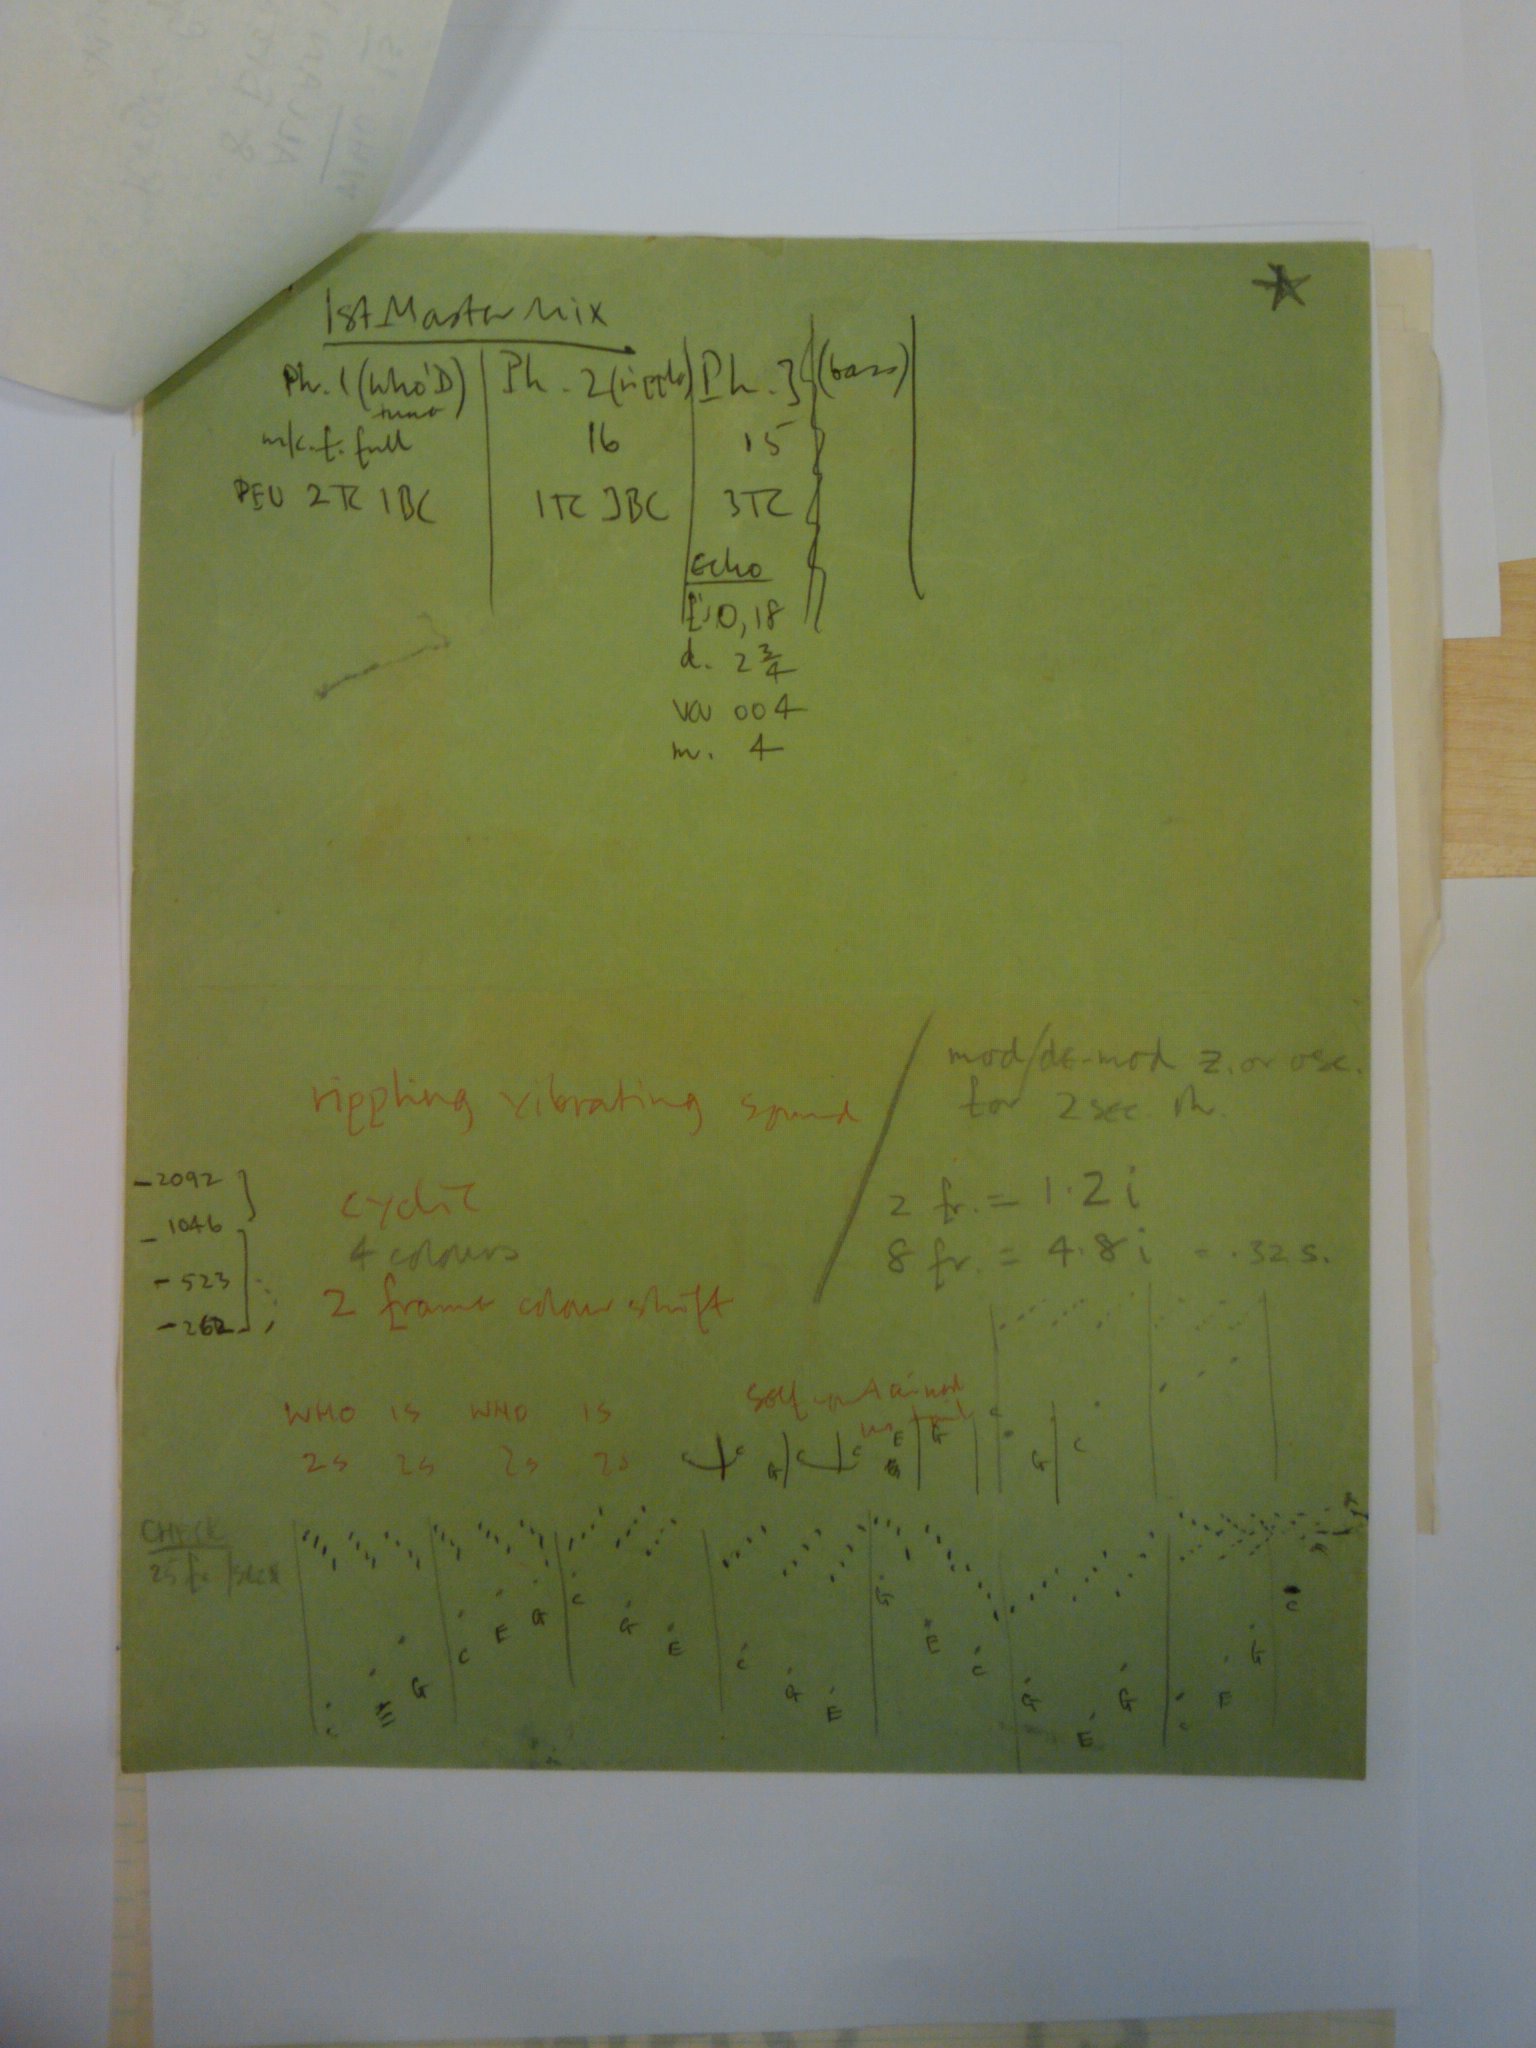 1st Master Mix
Ph. 1 (Who'D tune) Ph. 2 (ripple) Ph. 3 (bass)
m/c. f. full 16 15
PEU 2TC 1BC 1TC 3BC 3TC
Echo
f's 0, 18
d. 2 3/4
VU 004
m. 4
mod/de-mod z. or osc.
for 2 sec Ph.
rippling vibrating sound
2 fr. = 1.2 i
8 fr. = 4.8 i = .32 s.
-2092
-1046
-523
-262
cyclic
4 colours
2 frame colour shift
WHO IS WHO IS
2s 2s 2s 2s
self contained
C G C C E G
G C
CHECK
25 fr/sec
C E G C E G C G E C G E G E C G E G C E G C